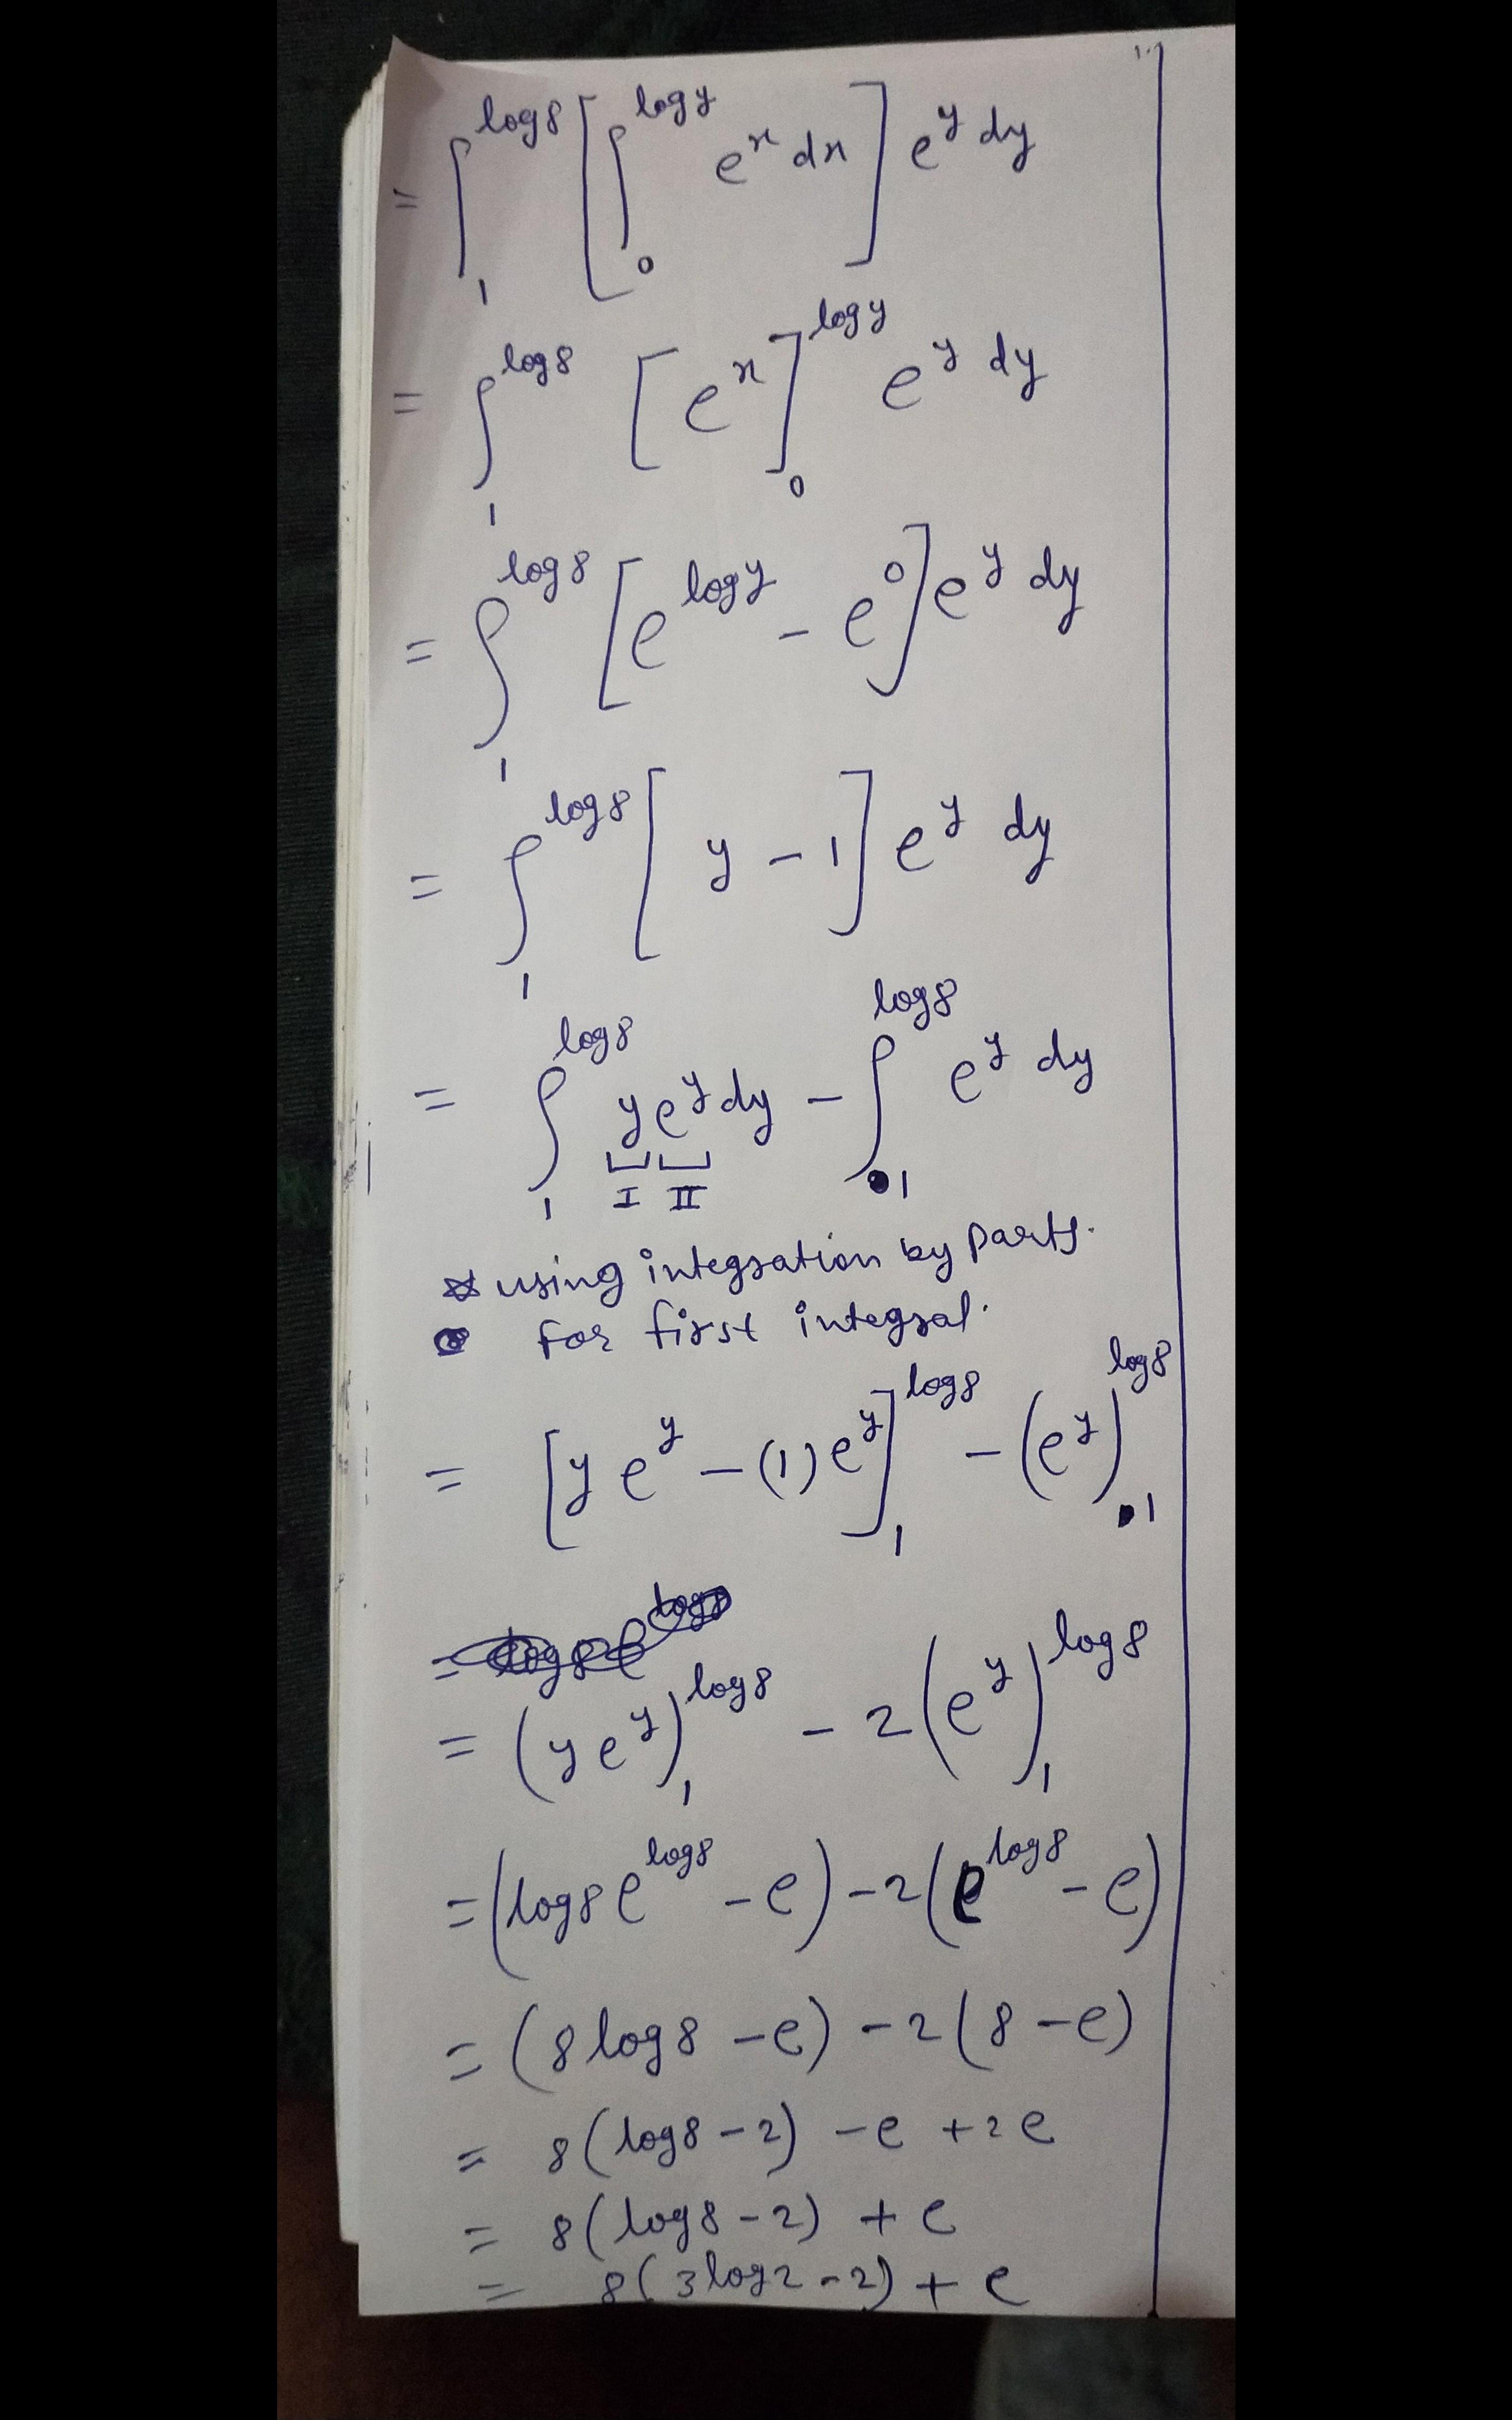 = ∫₁^{log8} [ ∫₀^{log y} e^x dx ] e^y dy
= ∫₁^{log8} [ e^x ]₀^{log y} e^y dy
= ∫₁^{log8} [ e^{log y} - e^0 ] e^y dy
= ∫₁^{log8} [ y - 1 ] e^y dy
= ∫₁^{log8} y e^y dy - ∫₁^{log8} e^y dy
I II
using integration by parts.
for first integral.
= [ y e^y - (1) e^y ]₁^{log8} - (e^y)₁^{log8}
= (y e^y)₁^{log8} - 2 (e^y)₁^{log8}
= (log8 e^{log8} - e) - 2 (e^{log8} - e)
= (8 log8 - e) - 2 (8 - e)
= 8 (log8 - 2) - e + 2e
= 8 (log8 - 2) + e
= 8 (3 log2 - 2) + e